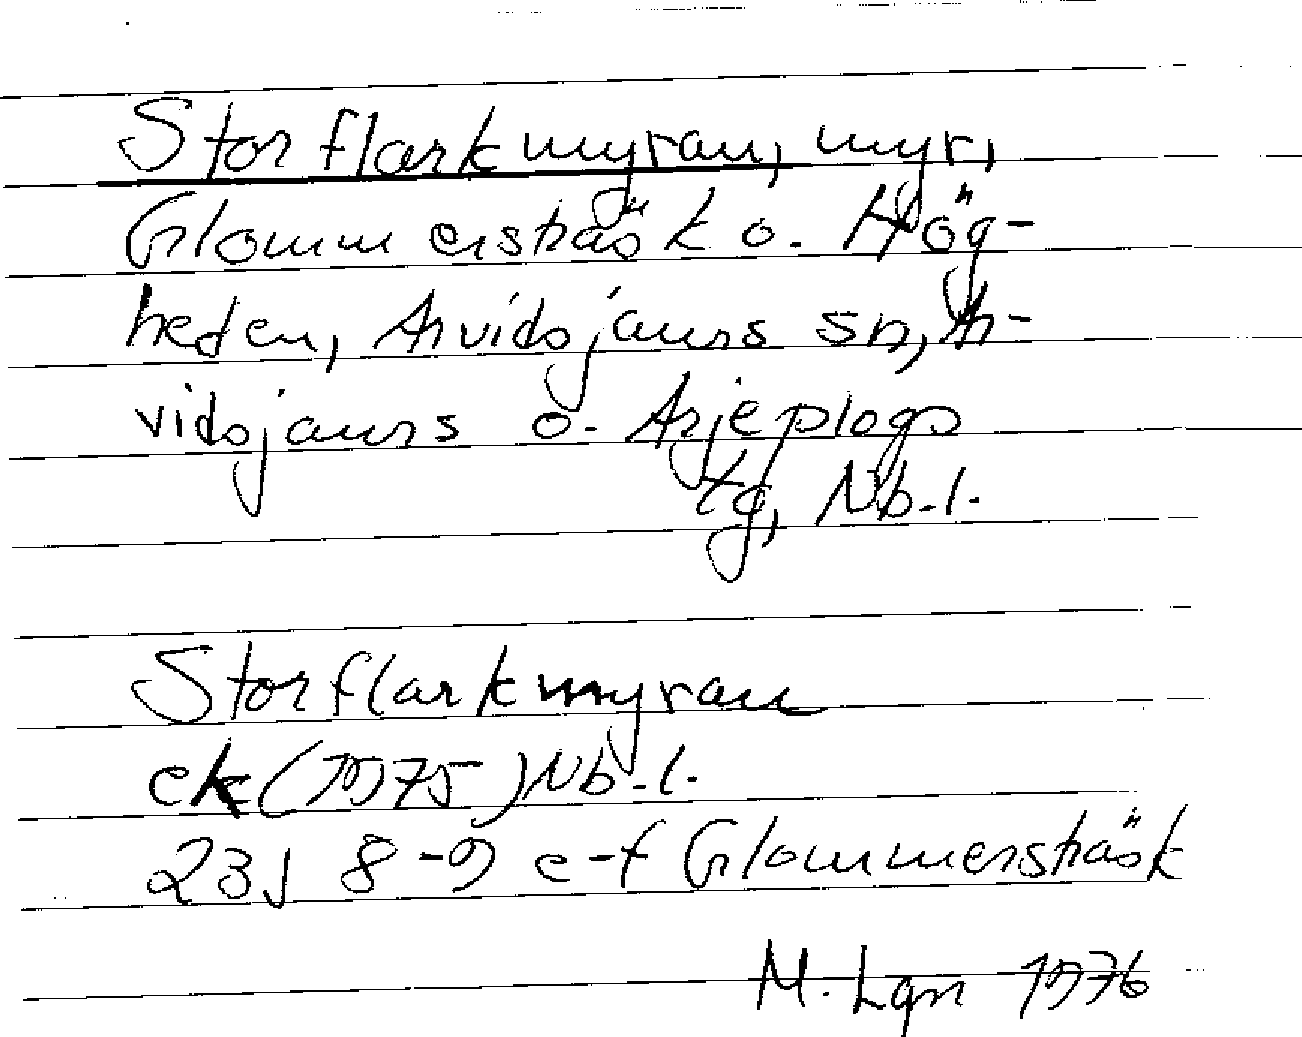 Storflarkmyran, myr,
Glommersträsk o. Hög-
heden, Arvidsjaurs sn, Ar-
vidsjaurs o. Arjeplogs
tg, Nb.l.
Storflarkmyran
ek (1975) Nb.l.
23J 8-9 e-f Glommersträsk
M. Lgn 1976